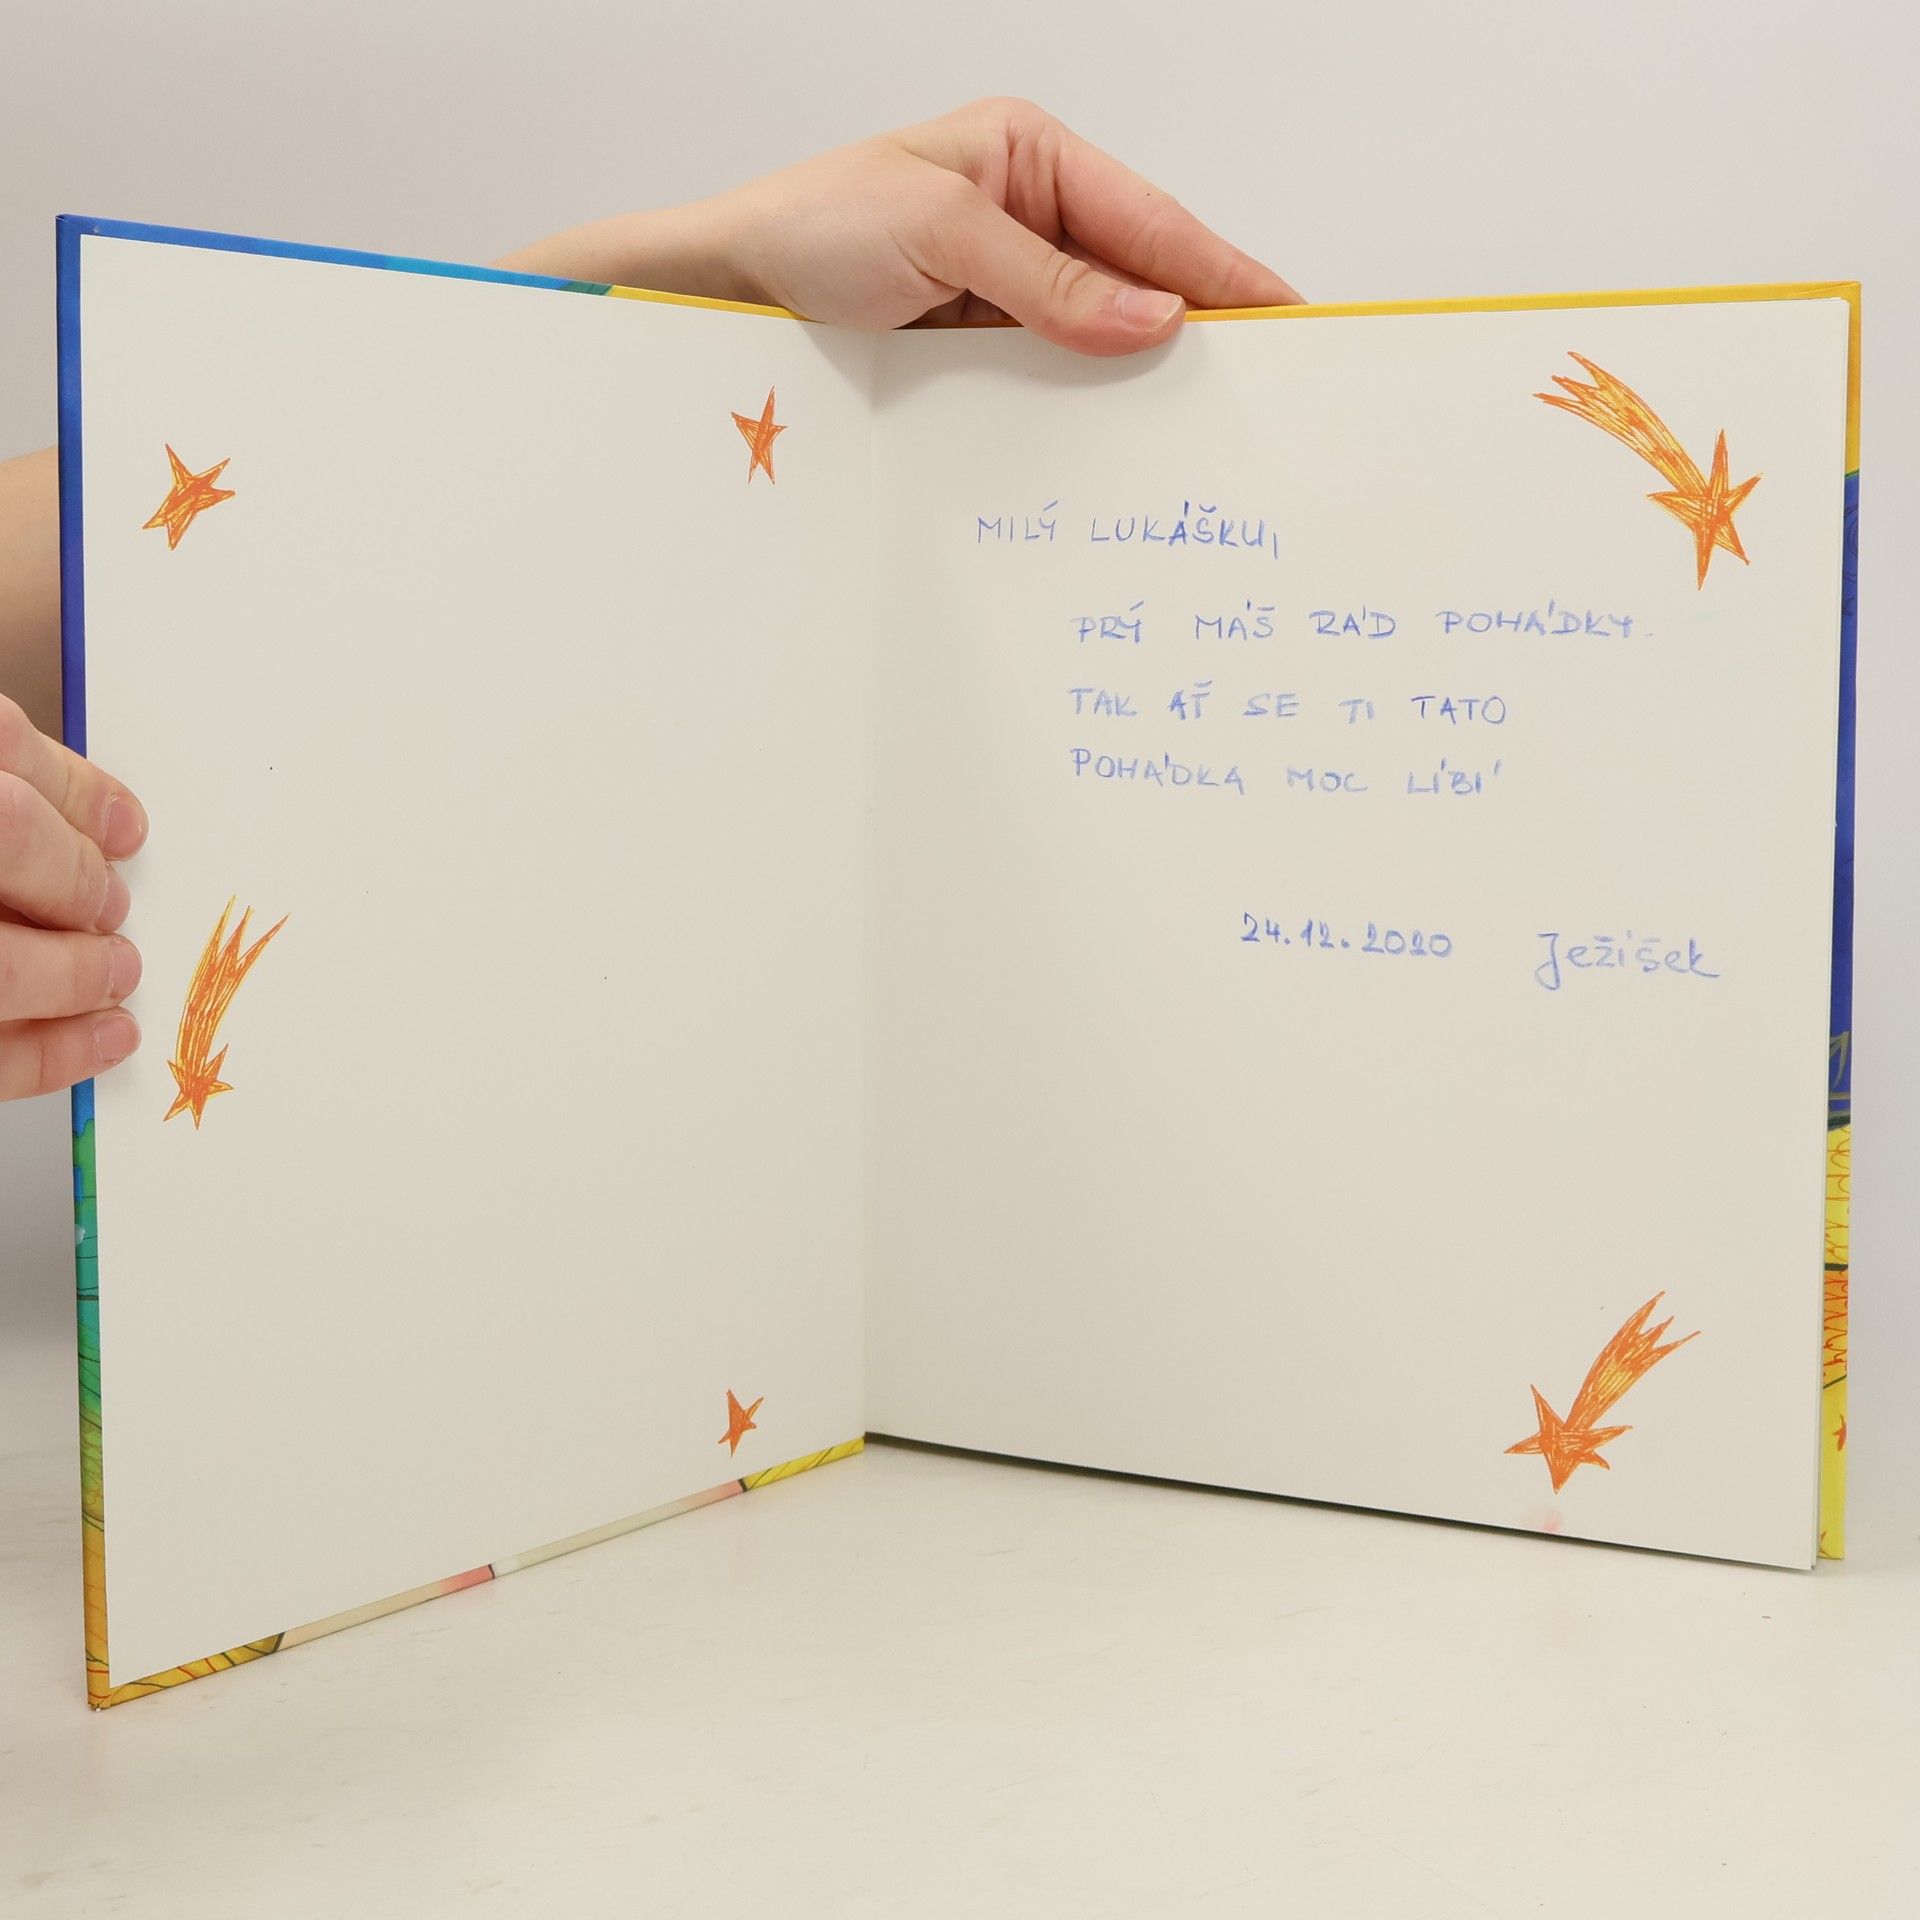 MILÝ LUKÁŠKU,
PRÝ MÁŠ RÁD POHÁDKY.
TAK AŤ SE TI TATO
POHÁDKA MOC LÍBÍ
24.12.2020 Ježíšek